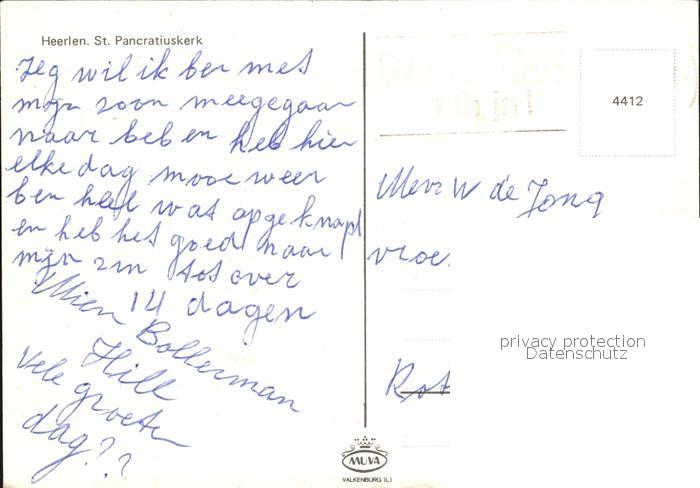 Heerlen. St. Pancratiuskerk
Zeg wil ik ben met
mijn zoon meegegaan
naar beb en heb hier
elke dag mooi weer
ben heel wat opgeknapt
en heb het goed naar
mijn zin tot over
14 dagen
Mien Bollerman
Hill
Vele groeten
dag??
4412
Mevr W de Jong
vroe
Rot
MUVA
VALKENBURG (L.)
privacy protection
Datenschutz